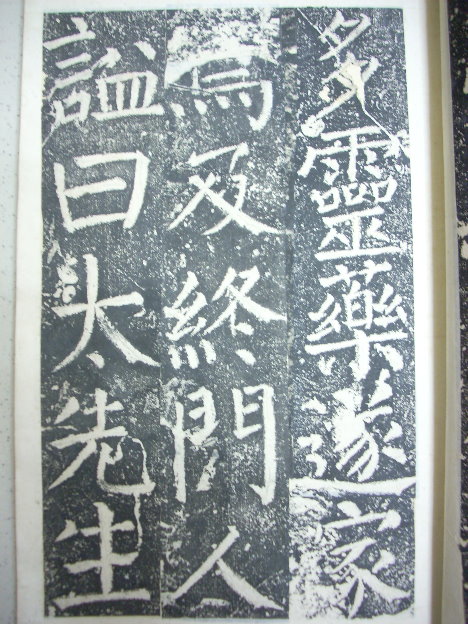 多靈藥遂家
焉及終門人
謚曰太先生